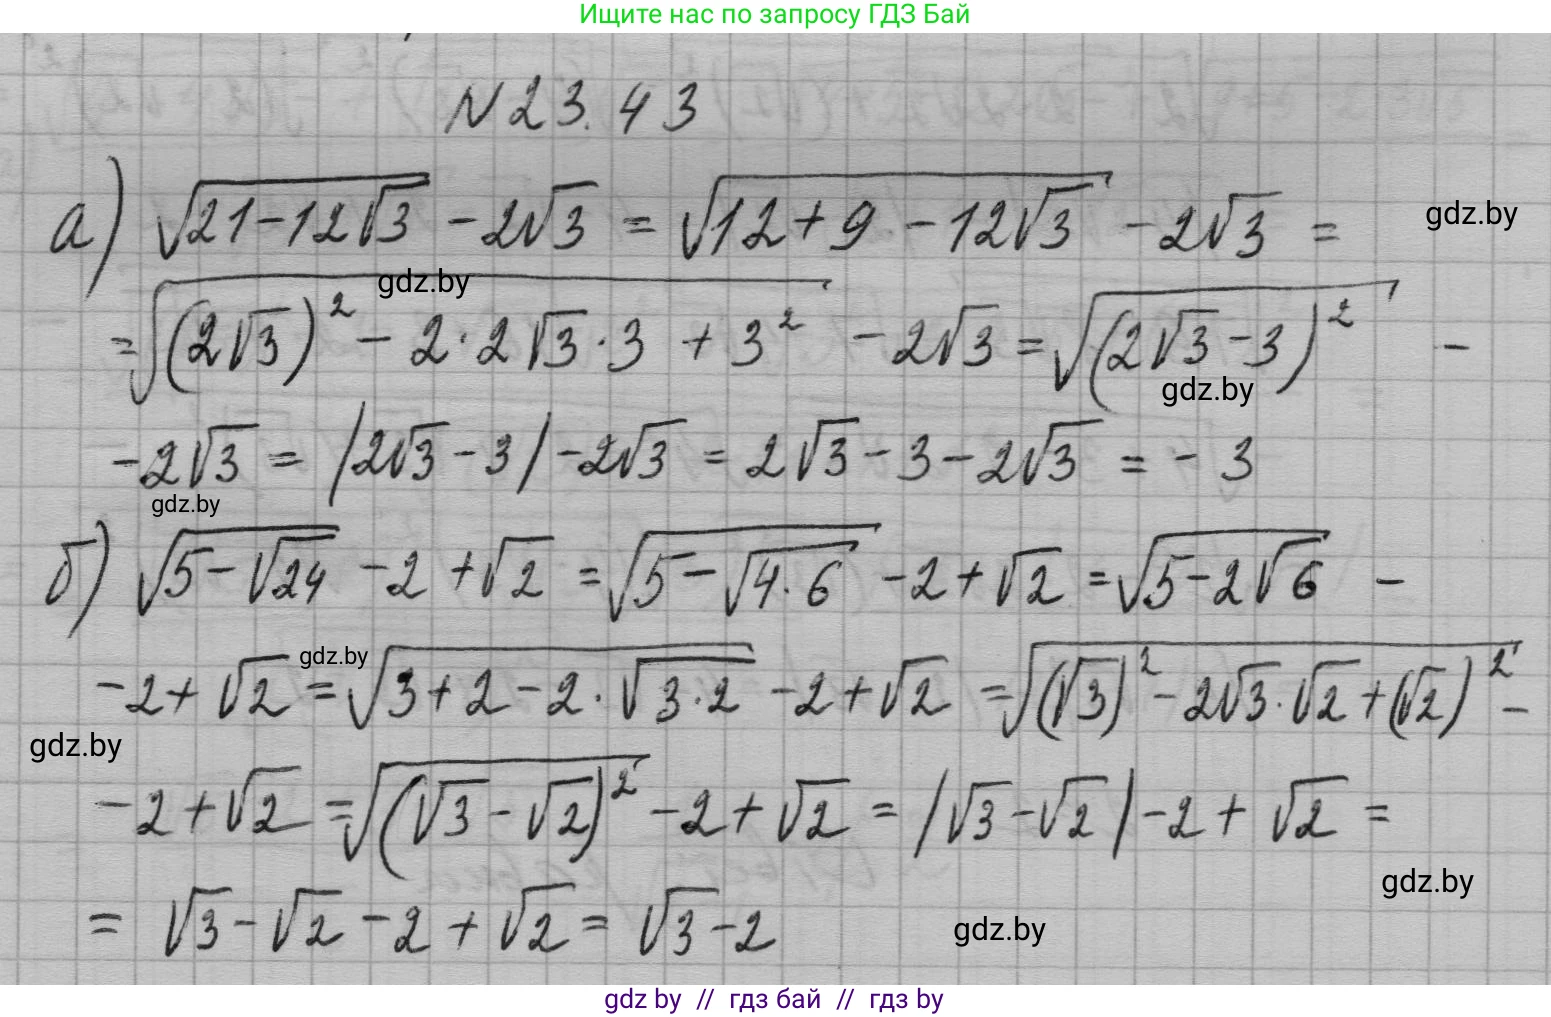 Ищите нас по запросу ГДЗ Бай
N 23.43
а) √(21-12√3) - 2√3 = √(12+9-12√3) - 2√3 =
gdz.by
= √((2√3)² - 2·2√3·3 + 3²) - 2√3 = √((2√3-3)²) -
gdz.by
gdz.by
-2√3 = |2√3-3| -2√3 = 2√3-3-2√3 = -3
gdz.by
б) √(5-√24) -2+√2 = √(5-√(4·6)) -2+√2 = √(5-2√6) -
gdz.by
-2+√2 = √(3+2-2·√(3·2)) -2+√2 = √((√3)²-2√3·√2+(√2)²) -
gdz.by
-2+√2 = √((√3-√2)²) -2+√2 = |√3-√2| -2+√2 =
gdz.by
= √3-√2-2+√2 = √3-2
gdz.by
gdz by // гдз бай // гдз by